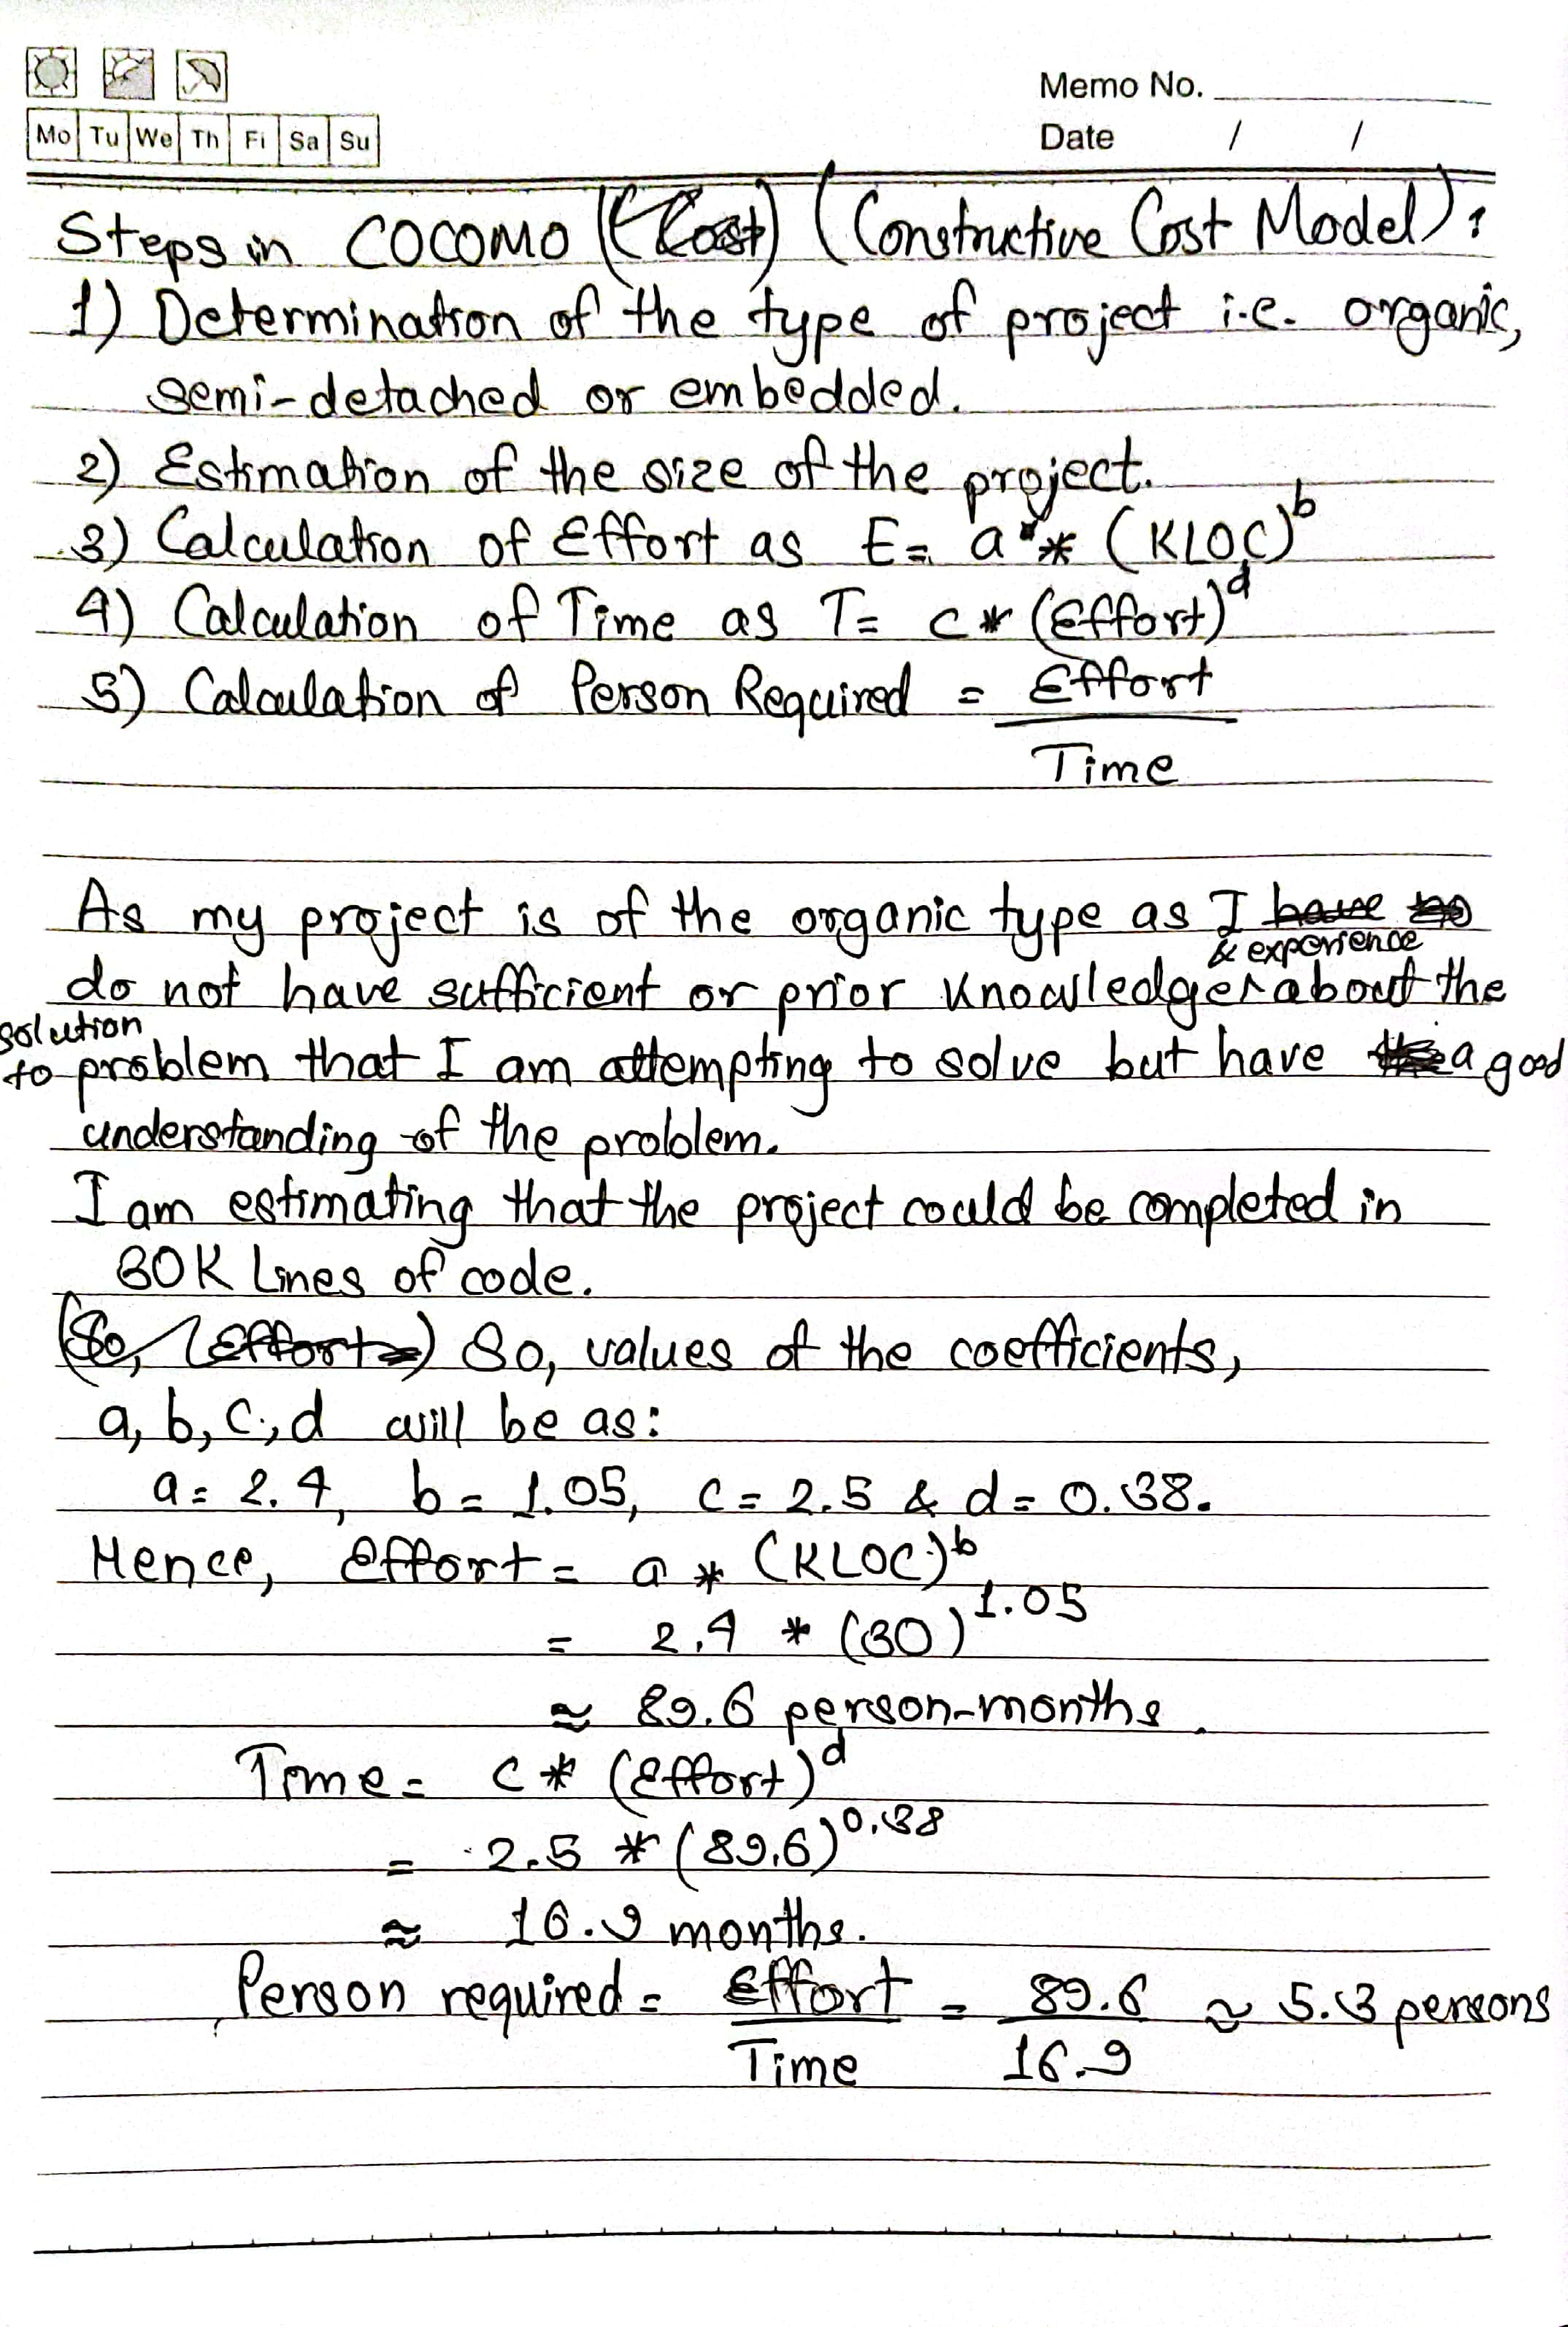 Memo No.
Mo Tu We Th Fi Sa Su
Date / /
Steps in COCOMO (Cost) (Constructive Cost Model):
1) Determination of the type of project i.e. organic,
semi-detached or embedded.
2) Estimation of the size of the project.
3) Calculation of Effort as E = a * (KLOC)^b
4) Calculation of Time as T = c * (Effort)^d
5) Calculation of Person Required = Effort
Time
As my project is of the organic type as I have no
& experience
do not have sufficient or prior knowledge about the
solution
to problem that I am attempting to solve but have a good
understanding of the problem.
I am estimating that the project could be completed in
30K Lines of code.
(So, (Effort=) So, values of the coefficients,
a, b, c, d will be as:
a = 2.4, b = 1.05, c = 2.5 & d = 0.38.
Hence, Effort = a * (KLOC)^b
= 2.4 * (30)^1.05
≈ 89.6 person-months.
Time = c * (Effort)^d
= 2.5 * (89.6)^0.38
≈ 16.9 months.
Person required = Effort = 89.6 ≈ 5.3 persons
Time 16.9